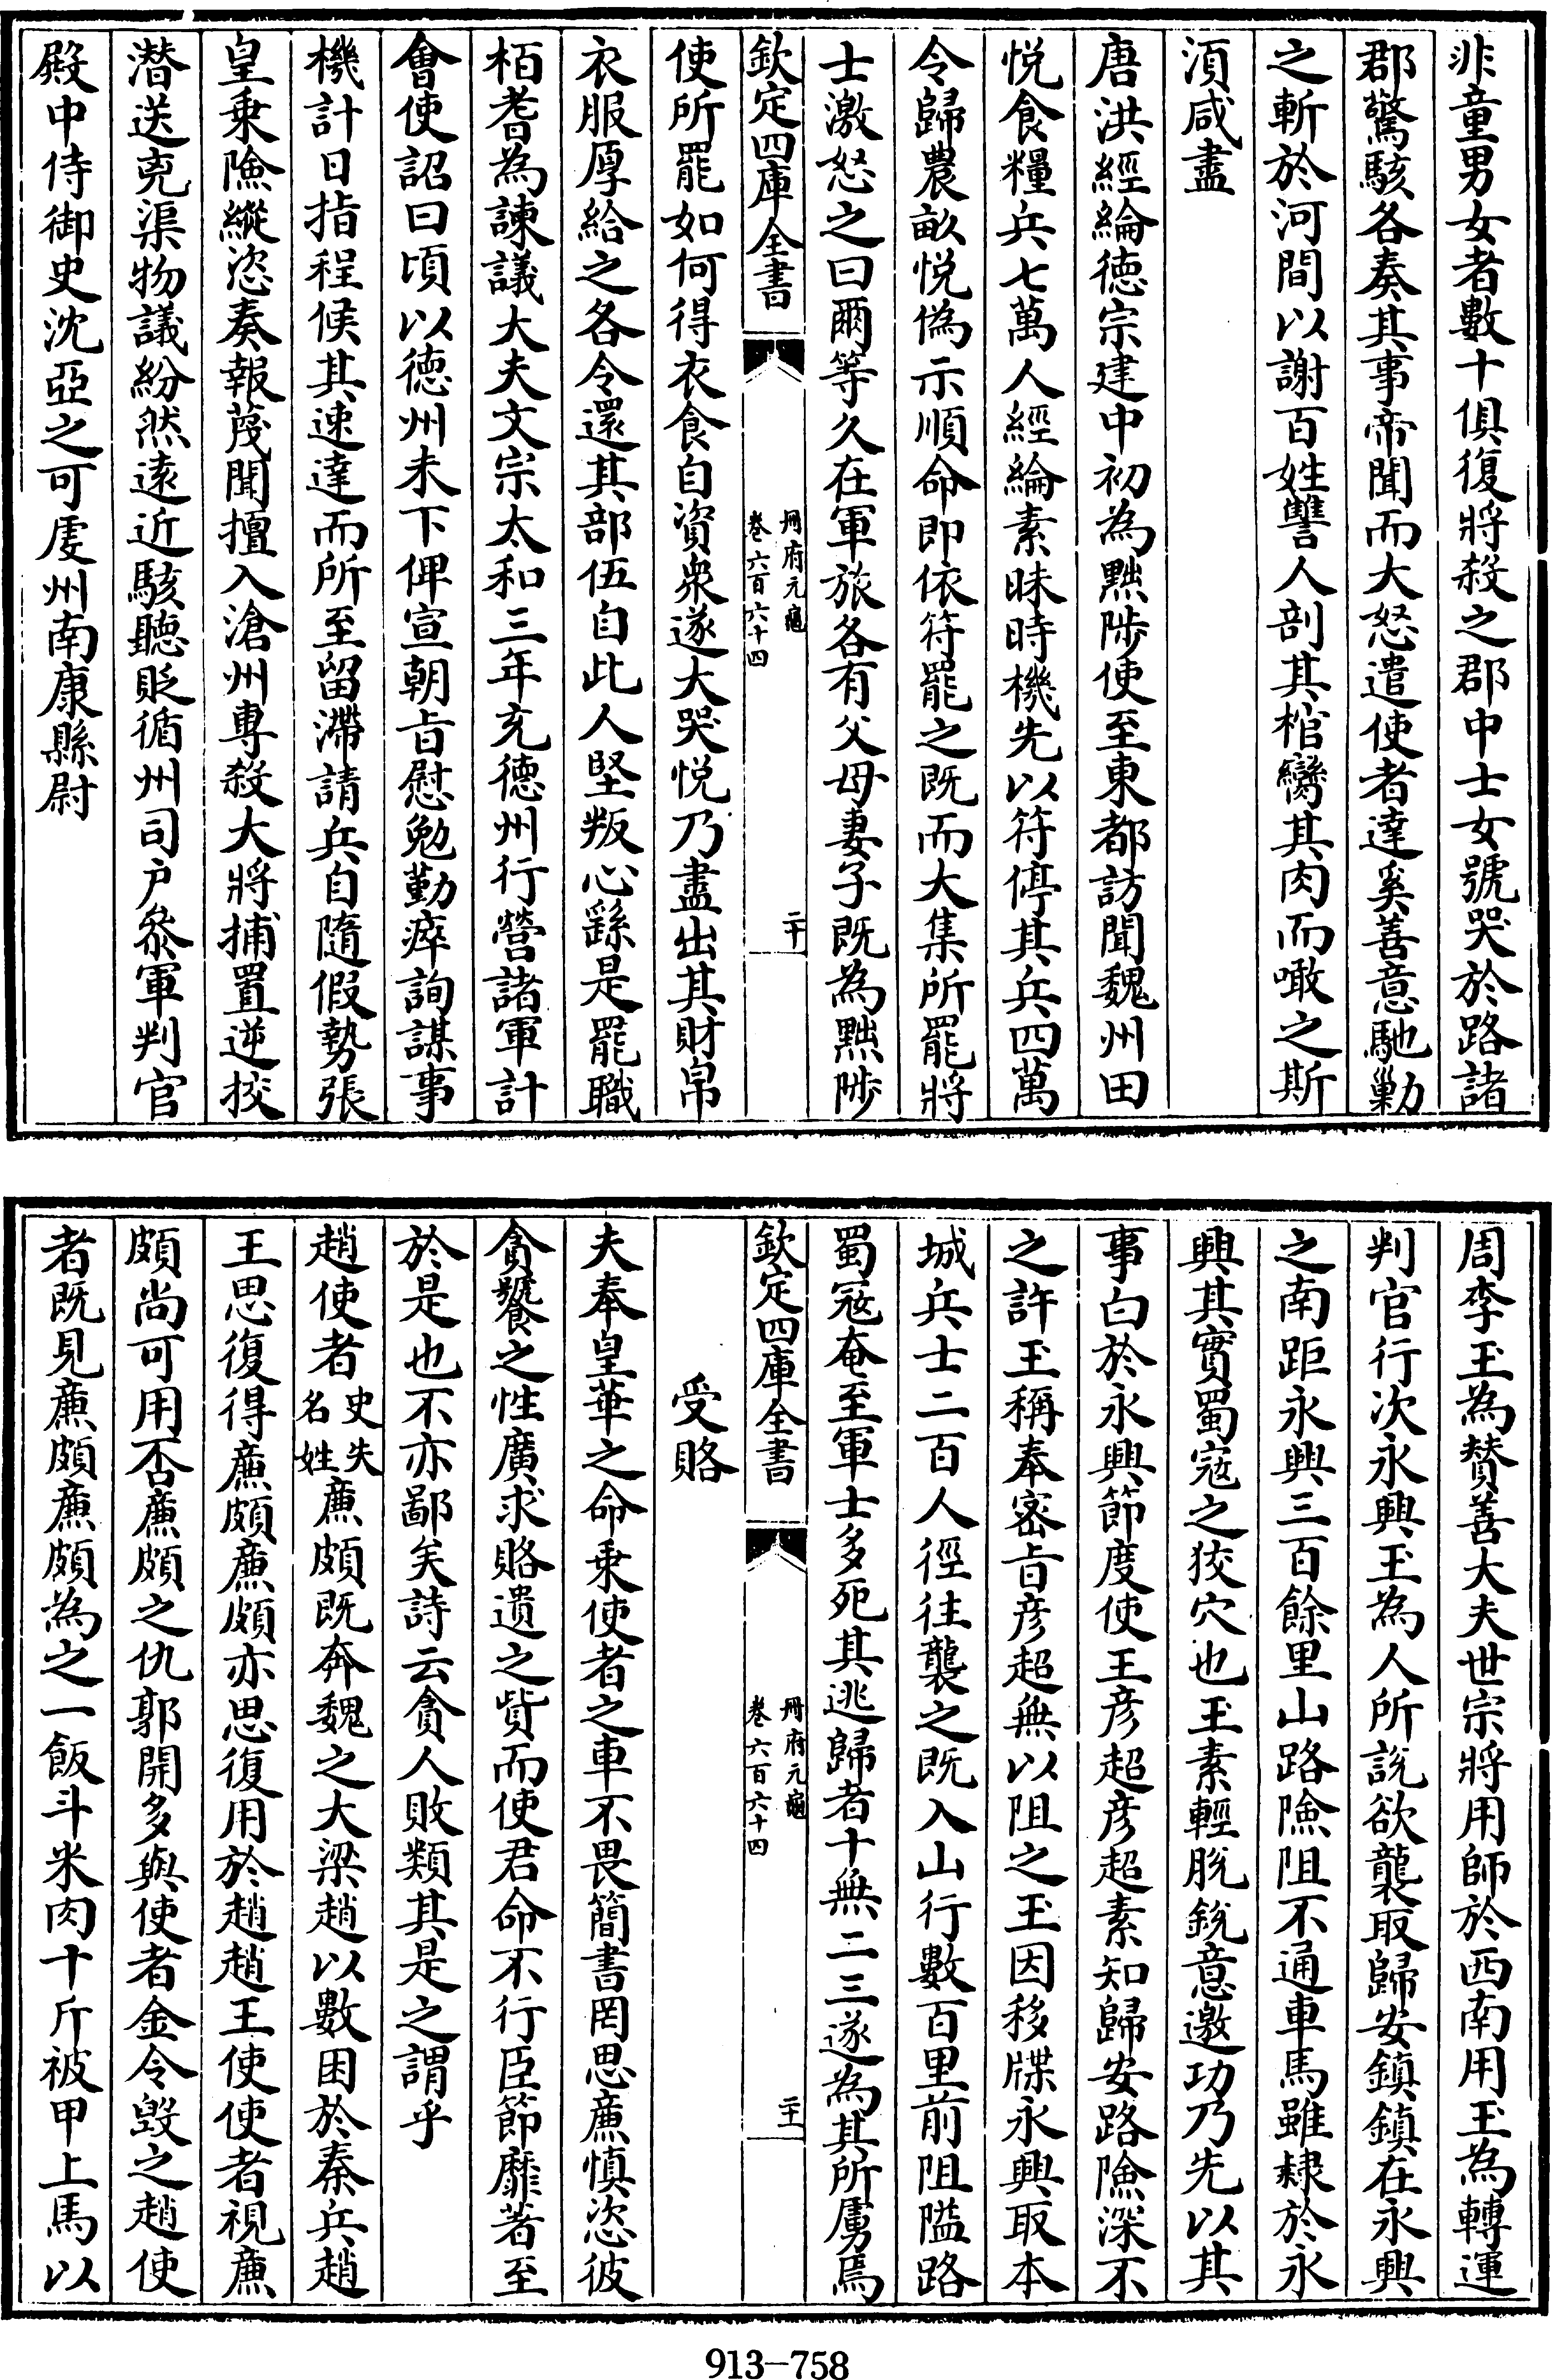 非童男女者數十俱復將殺之郡中士女號哭於路諸
郡驚駭各奏其事帝聞而大怒遣使者達奚善意馳勦
之斬於河間以謝百姓讐人剖其棺臠其肉而噉之斯
湏咸盡
唐洪經綸德宗建中初為黜陟使至東都訪聞魏州田
悦食糧兵七萬人經綸素昧時機先以符停其兵四萬
令歸農畝悦偽示順命即依符罷之既而大集所罷將
士激怒之曰爾等久在軍旅各有父母妻子既為黜陟
欽定四庫全書
冊府元龜
卷六百六十四
二十
使所罷如何得衣食自資衆遂大哭悦乃盡出其財帛
衣服厚給之各令還其部伍自此人堅叛心繇是罷職
栢耆為諫議大夫文宗太和三年充德州行營諸軍計
會使詔曰頃以德州未下俾宣朝旨慰勉勤瘁詢謀事
機計日指程候其速達而所至留滯請兵自隨假勢張
皇乗險縱恣奏報茂聞擅入滄州專殺大將捕置逆挍
潛送兗渠物議紛然逺近駭聽貶循州司户叅軍判官
殿中侍御史沈亞之可虔州南康縣尉
周李玉為贊善大夫世宗將用師於西南用玉為轉運
判官行次永興玉為人所說欲襲取歸安鎮鎮在永興
之南距永興三百餘里山路險阻不通車馬雖隸於永
興其實蜀寇之狡穴也玉素輕脱銳意邀功乃先以其
事白於永興節度使王彦超彦超素知歸安路險深不
之許玉稱奉密旨彦超無以阻之玉因移牒永興取本
城兵士二百人徑往襲之既入山行數百里前阻隘路
蜀寇奄至軍士多死其逃歸者十無二三遂為其所虜焉
欽定四庫全書
冊府元龜
卷六百六十四
二十一
受賂
夫奉皇華之命乗使者之車不畏簡書罔思亷慎恣彼
貪饕之性廣求賂遺之貲而使君命不行臣節靡著至
於是也不亦鄙矣詩云貪人敗類其是之謂乎
趙使者史失名姓亷頗既奔魏之大梁趙以數困於秦兵趙
王思復得亷頗亷頗亦思復用於趙趙王使使者視亷
頗尚可用否亷頗之仇郭開多與使者金令毁之趙使
者既見亷頗亷頗為之一飯斗米肉十斤被甲上馬以
913-758